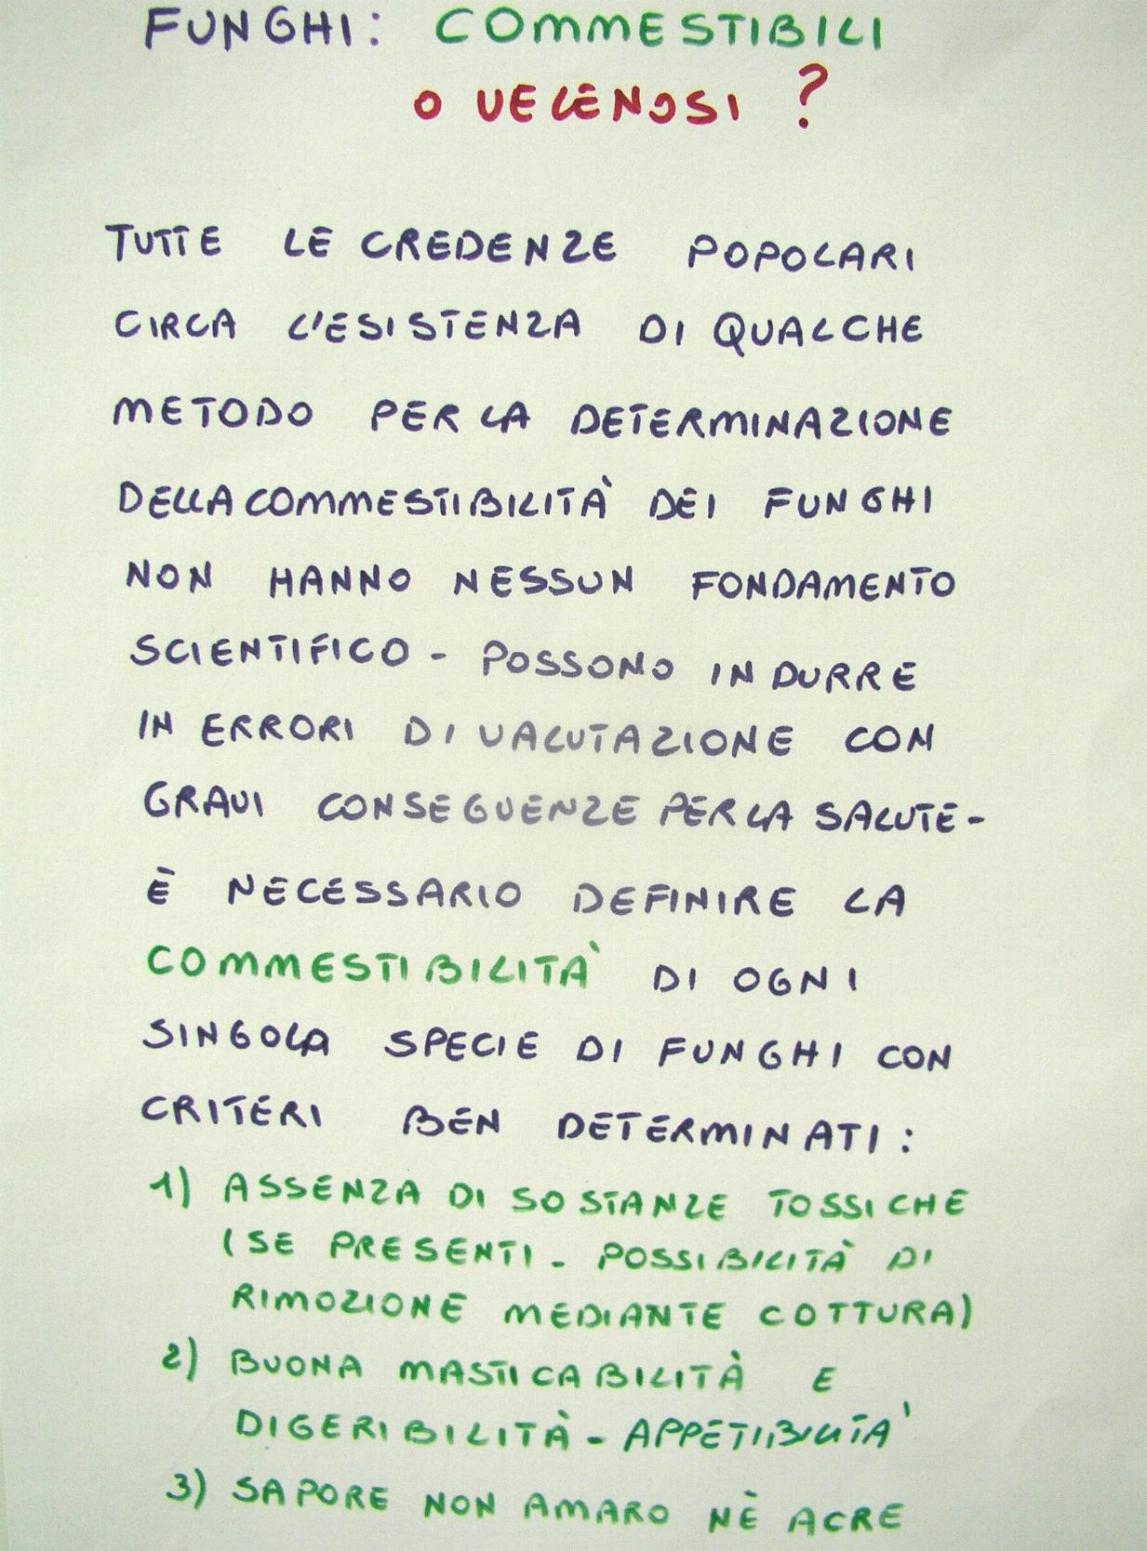 FUNGHI: COMMESTIBILI
O VELENOSI ?
TUTTE LE CREDENZE POPOLARI
CIRCA L'ESISTENZA DI QUALCHE
METODO PER LA DETERMINAZIONE
DELLA COMMESTIBILITÀ DEI FUNGHI
NON HANNO NESSUN FONDAMENTO
SCIENTIFICO - POSSONO INDURRE
IN ERRORI DI VALUTAZIONE CON
GRAVI CONSEGUENZE PER LA SALUTE -
È NECESSARIO DEFINIRE LA
COMMESTIBILITÀ DI OGNI
SINGOLA SPECIE DI FUNGHI CON
CRITERI BEN DETERMINATI:
1) ASSENZA DI SOSTANZE TOSSICHE
(SE PRESENTI - POSSIBILITÀ DI
RIMOZIONE MEDIANTE COTTURA)
2) BUONA MASTICABILITÀ E
DIGERIBILITÀ - APPETIBILITA'
3) SAPORE NON AMARO NÈ ACRE